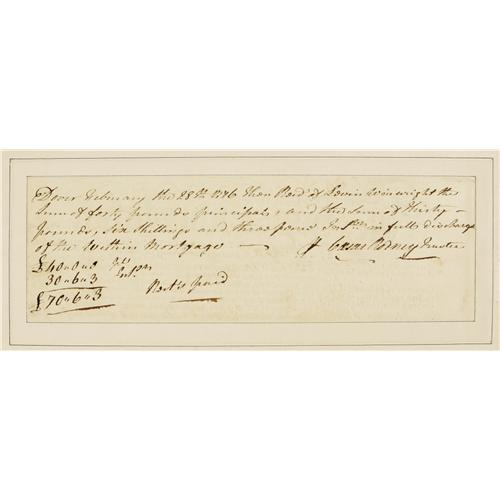 Dover February the 28th 1786 then Recd of Levin Wainwright the
Sum of forty pounds principal, and the Sum of thirty
pounds, Six Shillings and three pence Int in full discharge
of the within Mortgage — Caesar Rodney
£40 „ 0 „ 0
30 „ 6 „ 3
£70 „ 6 „ 3